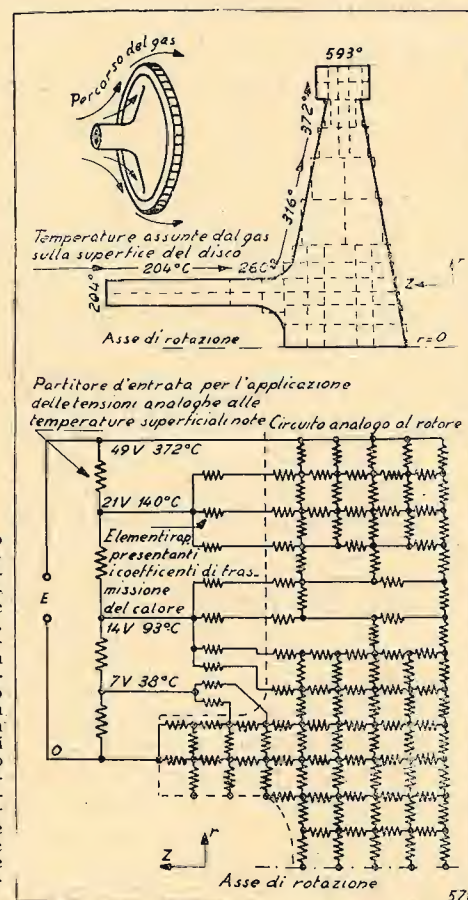 593°
Percorso del gas
372°
316°
Temperature assunte dal gas
sulla superfice del disco
204°C
260°
204°
z
r
Asse di rotazione
r=0
Partitore d'entrata per l'applicazione
delle tensioni analoghe alle
temperature superficiali note
Circuito analogo al rotore
49V 372°C
21V 140°C
Elementi rap
presentanti
i coefficenti di tras_
missione
del calore
E
14V 93°C
7V 38°C
0
r
Z
Asse di rotazione